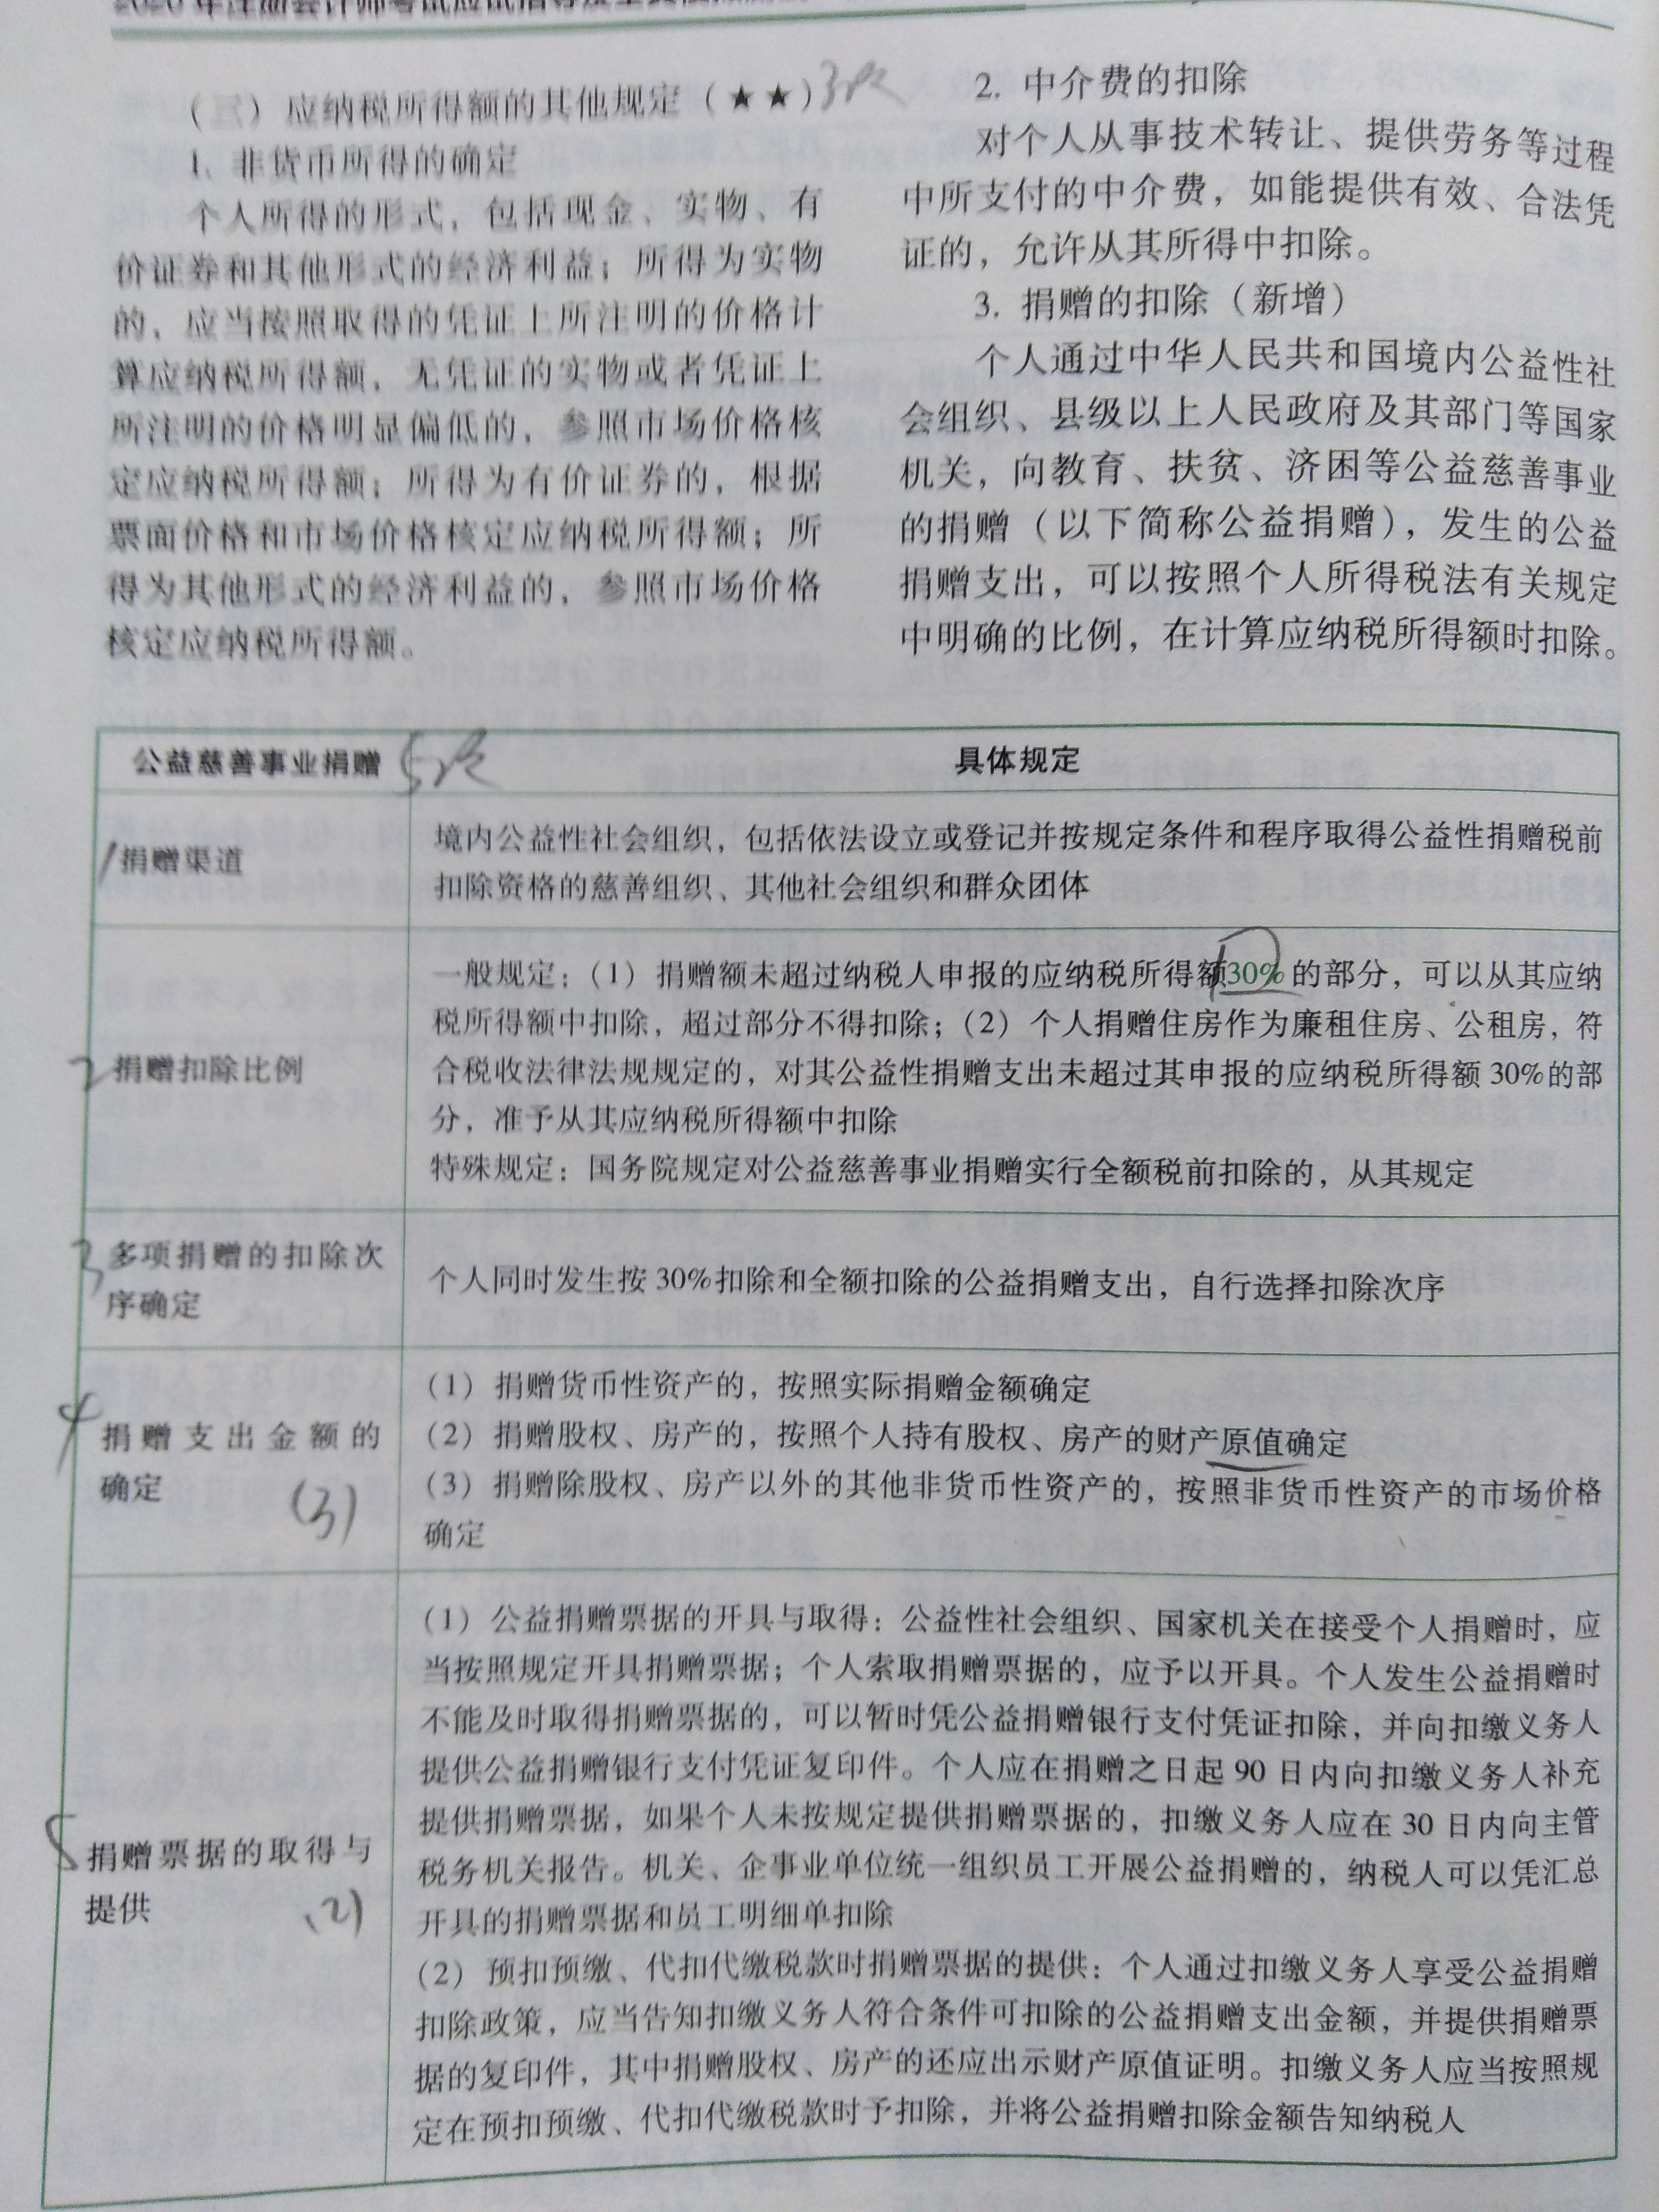 (三)应纳税所得额的其他规定(★★)3块
1. 非货币所得的确定
个人所得的形式,包括现金、实物、有
价证券和其他形式的经济利益;所得为实物
的,应当按照取得的凭证上所注明的价格计
算应纳税所得额,无凭证的实物或者凭证上
所注明的价格明显偏低的,参照市场价格核
定应纳税所得额;所得为有价证券的,根据
票面价格和市场价格核定应纳税所得额;所
得为其他形式的经济利益的,参照市场价格
核定应纳税所得额。
2. 中介费的扣除
对个人从事技术转让、提供劳务等过程
中所支付的中介费,如能提供有效、合法凭
证的,允许从其所得中扣除。
3. 捐赠的扣除(新增)
个人通过中华人民共和国境内公益性社
会组织、县级以上人民政府及其部门等国家
机关,向教育、扶贫、济困等公益慈善事业
的捐赠(以下简称公益捐赠),发生的公益
捐赠支出,可以按照个人所得税法有关规定
中明确的比例,在计算应纳税所得额时扣除。
公益慈善事业捐赠 5块
具体规定
1 捐赠渠道
境内公益性社会组织,包括依法设立或登记并按规定条件和程序取得公益性捐赠税前
扣除资格的慈善组织、其他社会组织和群众团体
2 捐赠扣除比例
一般规定:(1)捐赠额未超过纳税人申报的应纳税所得额30%的部分,可以从其应纳
税所得额中扣除,超过部分不得扣除;(2)个人捐赠住房作为廉租住房、公租房,符
合税收法律法规规定的,对其公益性捐赠支出未超过其申报的应纳税所得额30%的部
分,准予从其应纳税所得额中扣除
特殊规定:国务院规定对公益慈善事业捐赠实行全额税前扣除的,从其规定
3 多项捐赠的扣除次
序确定
个人同时发生按30%扣除和全额扣除的公益捐赠支出,自行选择扣除次序
4 捐赠支出金额的
确定 (3)
(1)捐赠货币性资产的,按照实际捐赠金额确定
(2)捐赠股权、房产的,按照个人持有股权、房产的财产原值确定
(3)捐赠除股权、房产以外的其他非货币性资产的,按照非货币性资产的市场价格
确定
5 捐赠票据的取得与
提供 (2)
(1)公益捐赠票据的开具与取得:公益性社会组织、国家机关在接受个人捐赠时,应
当按照规定开具捐赠票据;个人索取捐赠票据的,应予以开具。个人发生公益捐赠时
不能及时取得捐赠票据的,可以暂时凭公益捐赠银行支付凭证扣除,并向扣缴义务人
提供公益捐赠银行支付凭证复印件。个人应在捐赠之日起90日内向扣缴义务人补充
提供捐赠票据,如果个人未按规定提供捐赠票据的,扣缴义务人应在30日内向主管
税务机关报告。机关、企事业单位统一组织员工开展公益捐赠的,纳税人可以凭汇总
开具的捐赠票据和员工明细单扣除
(2)预扣预缴、代扣代缴税款时捐赠票据的提供:个人通过扣缴义务人享受公益捐赠
扣除政策,应当告知扣缴义务人符合条件可扣除的公益捐赠支出金额,并提供捐赠票
据的复印件,其中捐赠股权、房产的还应出示财产原值证明。扣缴义务人应当按照规
定在预扣预缴、代扣代缴税款时予扣除,并将公益捐赠扣除金额告知纳税人